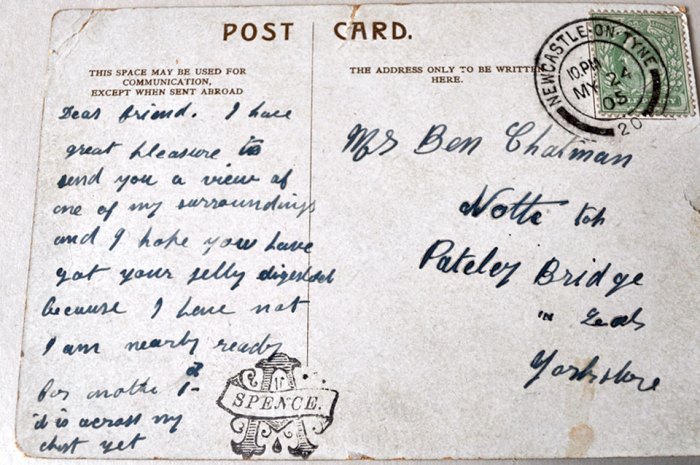 POST CARD.
THIS SPACE MAY BE USED FOR
COMMUNICATION,
EXCEPT WHEN SENT ABROAD
THE ADDRESS ONLY TO BE WRITTEN
HERE.
NEWCASTLE-ON-TYNE
10.PM
MY 24
05
20
Dear friend. I have
great pleasure to
send you a view of
one of my surroundings
and I hope you have
got your jelly digested
because I have not
I am nearly ready
for
it is across my
chest yet
SPENCE.
Ben Chatman
Pateley Bridge
Leeds
Yorkshire